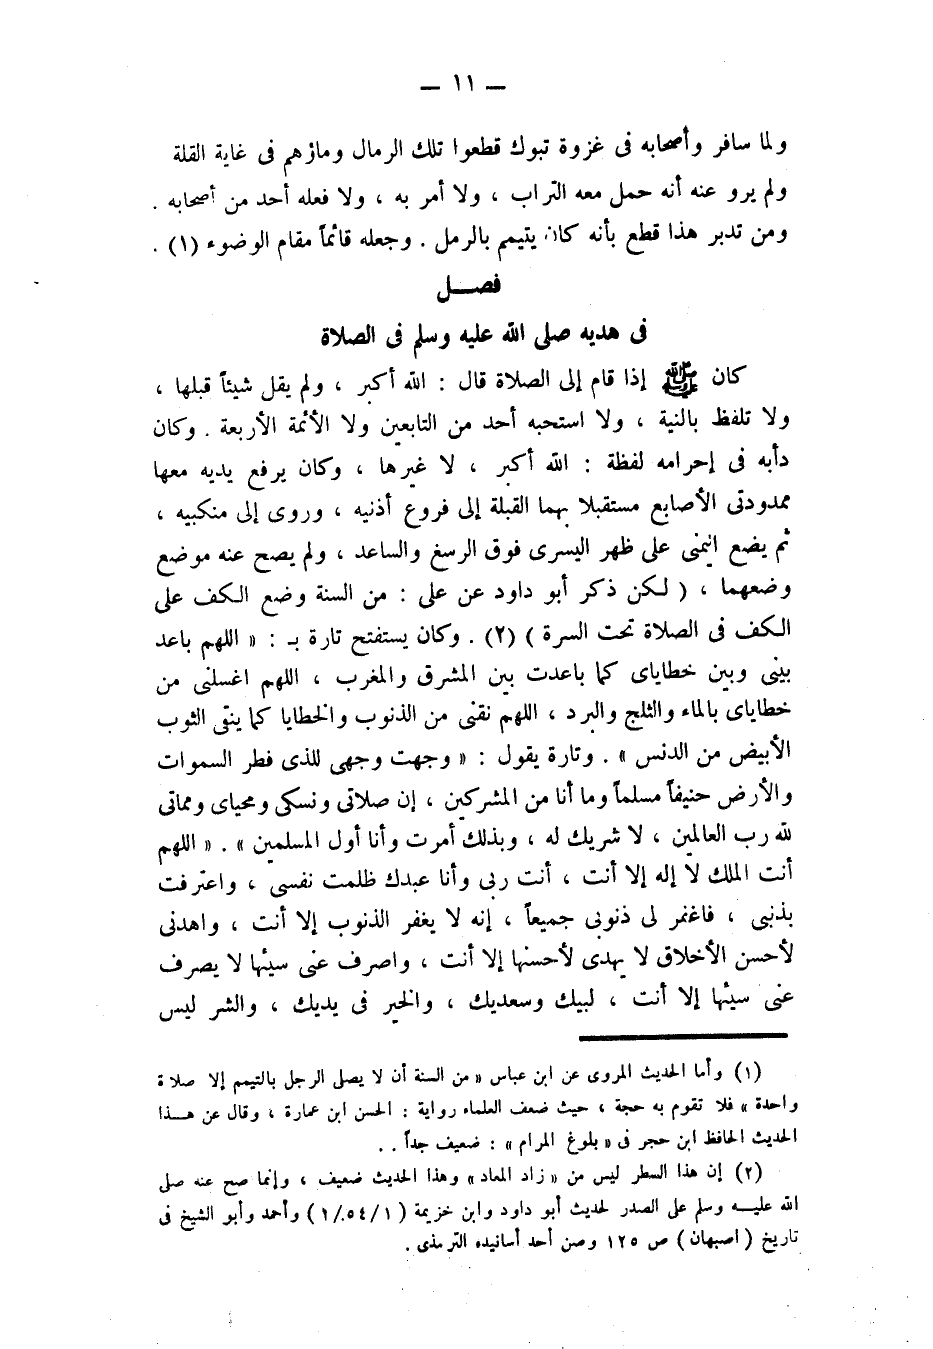 — ١١ —
ولما سافر وأصحابه فى غزوة تبوك قطعوا تلك الرمال وماؤهم فى غاية القلة
ولم يرو عنه أنه حمل معه التراب ، ولا أمر به ، ولا فعله أحد من أصحابه .
ومن تدبر هذا قطع بأنه كان يتيمم بالرمل . وجعله قائماً مقام الوضوء (١) .
فصــل
فى هديه صلى الله عليه وسلم فى الصلاة
كان ﷺ إذا قام إلى الصلاة قال : الله أكبر ، ولم يقل شيئاً قبلها ،
ولا تلفظ بالنية ، ولا استحبه أحد من التابعين ولا الأئمة الأربعة . وكان
دأبه فى إحرامه لفظة : الله أكبر ، لا غيرها ، وكان يرفع يديه معها
ممدودتى الأصابع مستقبلا بهما القبلة إلى فروع أذنيه ، وروى إلى منكبيه ،
ثم يضع اليمنى على ظهر اليسرى فوق الرسغ والساعد ، ولم يصح عنه موضع
وضعهما ، ( لكن ذكر أبو داود عن على : من السنة وضع الكف على
الكف فى الصلاة تحت السرة ) (٢) . وكان يستفتح تارة بـ : « اللهم باعد
بينى وبين خطاياى كما باعدت بين المشرق والمغرب ، اللهم اغسلنى من
خطاياى بالماء والثلج والبرد ، اللهم نقنى من الذنوب والخطايا كما ينقى الثوب
الأبيض من الدنس » . وتارة يقول : « وجهت وجهى للذى فطر السموات
والأرض حنيفاً مسلماً وما أنا من المشركين ، إن صلاتى ونسكى ومحياى ومماتى
لله رب العالمين ، لا شريك له ، وبذلك أمرت وأنا أول المسلمين » . « اللهم
أنت الملك لا إله إلا أنت ، أنت ربى وأنا عبدك ظلمت نفسى ، واعترفت
بذنبى ، فاغفر لى ذنوبى جميعاً ، إنه لا يغفر الذنوب إلا أنت ، واهدنى
لأحسن الأخلاق لا يهدى لأحسنها إلا أنت ، واصرف عنى سيئها لا يصرف
عنى سيئها إلا أنت ، لبيك وسعديك ، والخير فى يديك ، والشر ليس
(١) وأما الحديث المروى عن ابن عباس « من السنة أن لا يصلى الرجل بالتيمم إلا صلاة
واحدة » فلا تقوم به حجة ، حيث ضعف العلماء رواية : الحسن ابن عمارة ، وقال عن هــذا
الحديث الحافظ ابن حجر فى « بلوغ المرام » : ضعيف جداً . .
(٢) إن هذا السطر ليس من « زاد المعاد » وهذا الحديث ضعيف ، وإنما صح عنه صلى
الله عليــه وسلم على الصدر لحديث أبو داود وابن خزيمة ( ١/٥٤/١ ) وأحمد وأبو الشيخ فى
تاريخ ( اصبهان ) ص ١٢٥ وصن أحد أسانيده الترمذى .